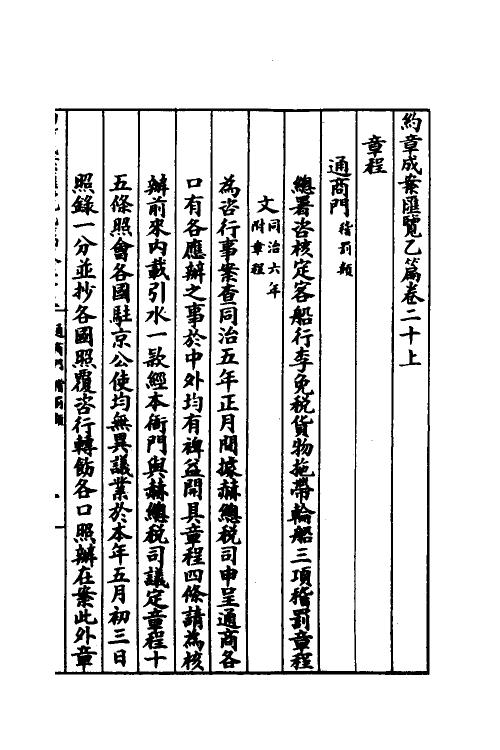 約章成案匯覽乙篇卷二十上
章程
通商門稽罰類
總署咨核定客船行李免稅貨物拖帶輪船三項稽罰章程
文同治六年
附章程
為咨行事案查同治五年正月間據赫總稅司申呈通商各
口有各應辦之事於中外均有裨益開具章程四條請為核
辦前來內載引水一款經本衙門與赫總稅司議定章程十
五條照會各國駐京公使均無異議業於本年五月初三日
照錄一分並抄各國照覆咨行轉飭各口照辦在案此外章
通商門 稽罰類